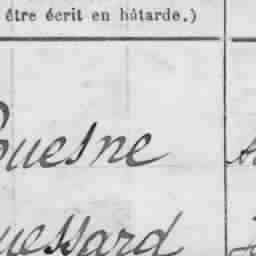 être écrit en bâtarde.)
ouesne
uessard